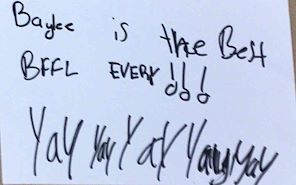 Baylee is the Best
BFFL EVERY!!!
Yay Yay Yay Yay Yay